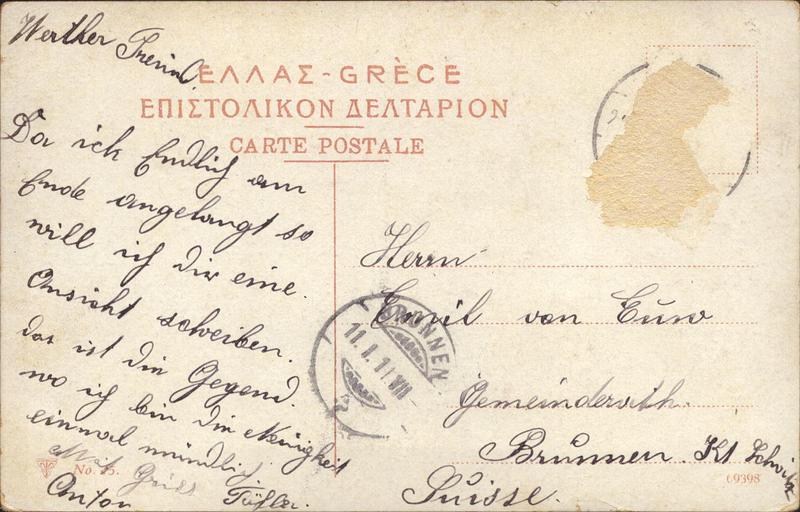 Werther Freund.
ΕΛΛΑΣ - GRÈCE
ΕΠΙΣΤΟΛΙΚΟΝ ΔΕΛΤΑΡΙΟΝ
CARTE POSTALE
Da ich Endlich am
Ende angelangt so
will ich dir eine
Ansicht schreiben.
das ist die Gegend.
wo ich bin die Neuigkeit
einmal mündlich.
Mit Gruss
Anton
Herrn
Emil von Euw
Gemeinderath.
Brunnen. Kt Schwiz
Suisse.
BRUNNEN
11.I.11.VIII
No. 15.
69398